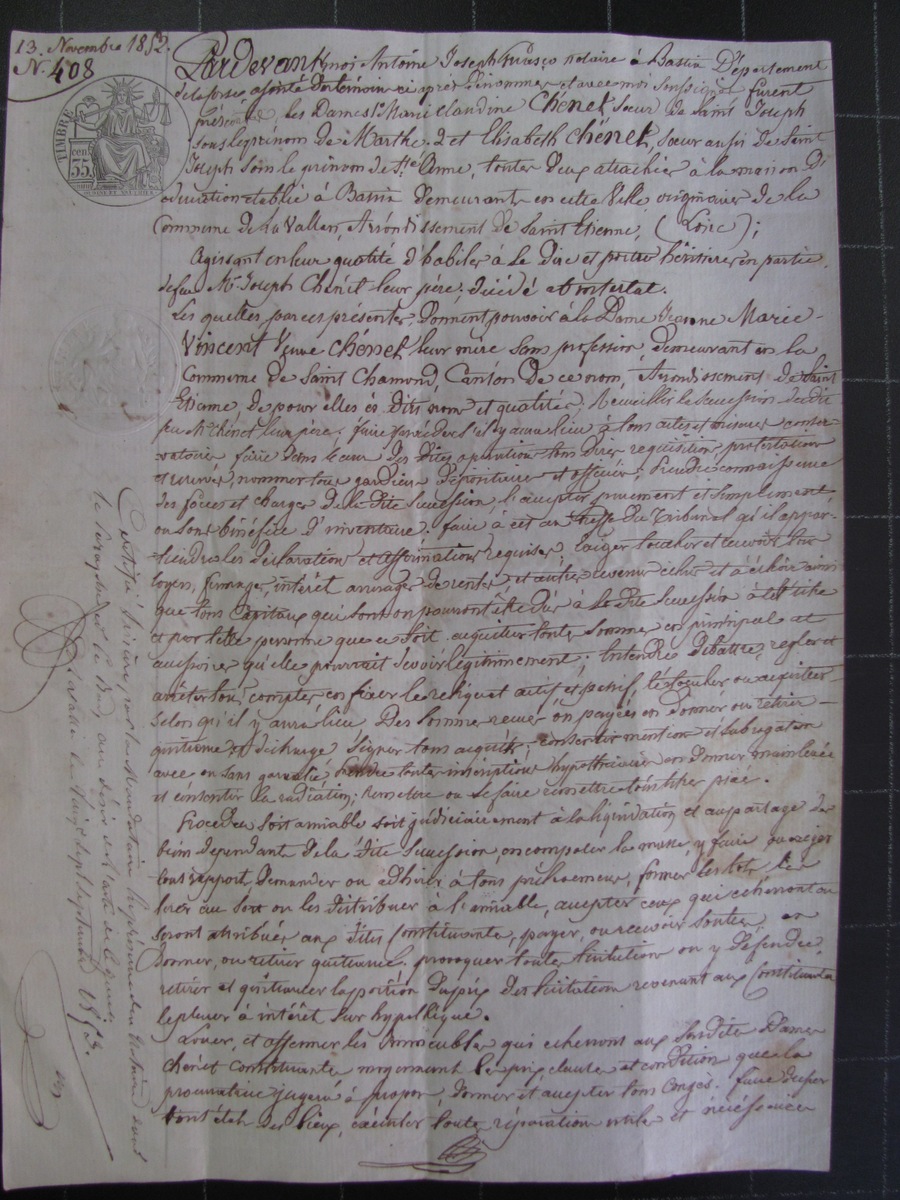 13. Novembre 1852.
N. 408
TIMBRE
35
Pardevant moi Antoine Joseph notaire à Bastia Département
de la Corse assisté des témoins ci après dénommés et avec moi soussignés furent
présentes, les Dames 1. Marie Claudine Chenet, Sœur de Saint Joseph
sous le prénom de Marthe. 2 et Elisabeth Chénet, sœur aussi de Saint
Joseph sous le prénom de Ste Anne, toutes deux attachées à la maison D'
éducation établie à Bastia demeurantes en cette Ville originaires de la
Commune de La Valla, Arrondissement de Saint Etienne, (Loire);
Agissant en leur qualité d'habiles à se dire et porter héritières en partie
de feu Mr Joseph Chénet leur père. décédé abintestat.
Les quelles par ces présentes, Donnent pouvoir à la Dame Jeanne Marie
Vincent Veuve Chénet leur mère sans profession, demeurant en la
Commune de Saint Chamond, Canton de ce nom, Arrondissement de Saint
Etienne, de pour elles ès dits nom et qualités, Recueillir la succession du dit
feu Mr Chénet leur père. faire procéder s'il y aura lieu à tous actes et mesures conser-
vatoires faire dans le cours des dites opérations tous dires requisitions protestations
et réserves, nommer tous gardiens dépositaires et officiers; prendre connaissance
des forces et charges de la dite succession, l'accepter purement et simplement,
ou sous bénéfice d'inventaire. faire à cet au Greffe du Tribunal qu'il appar-
tiendra les déclarations et affirmations requises, exiger toucher et recevoir tous
loyers, fermages, intérêt arrérages de rentes et autres revenus échus et à échoir ainsi
que tous Capitaux qui sont ou pourront être dûs à la dite succession à tel titre
et par telle personne que ce soit. acquitter toutes sommes en principal et
accessoires qu'elle pourrait devoir légitimement; Entendre débattre, régler et
arrêter tous comptes, en fixer le reliquat actif et passif, le toucher ou acquitter
selon qu'il y aura lieu. Des sommes reçues ou payées en donner ou retirer
quittance et décharge signer tous acquits; consentir mention et subrogation
avec ou sans garantie prendre toutes inscriptions hypothécaires en donner mainlevée
et consentir la radiation; remettre ou se faire remettre tous titres pièces.
Procéder soit amiable soit judiciairement à la liquidation et au partage des
biens dépendants de la dite succession, en composer la masse, y faire ou exiger
tous rapports, demander ou adhérer à tous prélèvements, former les lots, les
tirer au sort ou les distribuer à l'amiable, accepter ceux qui écherront ou
seront attribués aux dites Constituantes, payer, ou recevoir soultes, en
donner, ou retirer quittances, provoquer toutes licitations ou y défendre
retirer et quittancer la portion du prix des licitations revenant aux Constituantes
le placer à intérêt sur hypothèque.
Louer, et affermer les Immeubles qui écherront aux susdites Dames
Chénet constituantes moyennant les prix clauses et conditions que la
procuratrice jugera à propos, donner et accepter tous congés. faire dresser
tout état des lieux, exécuter toutes réparations utiles et nécéssaires
Certifié sincère, par la Mandataire en présence du Notaire dont
sept septembre 1853.